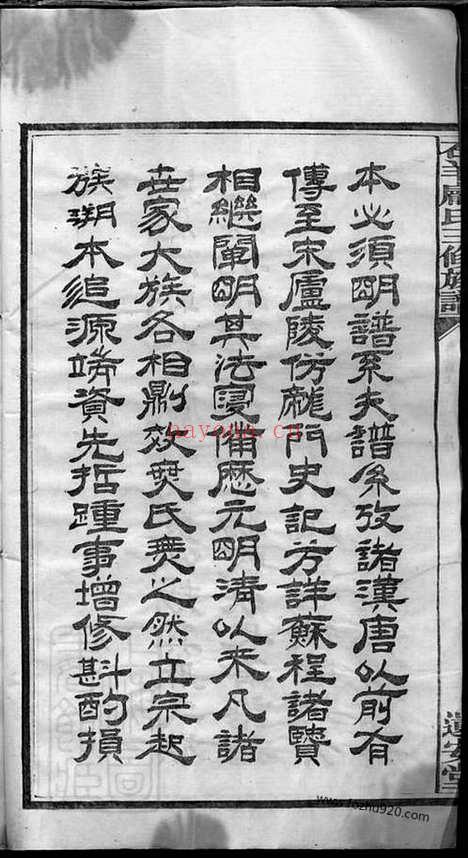 本必須明譜系夫譜系攷諸漢唐以前有
傳至宋廬陵仿龍門史記方詳蘇程諸賢
相繼闡明其法叓備歷元明清以來凡諸
世家大族各相則效無氏無之然立宗起
族溯本追源端資先哲踵事增修斟酌損
氏三修族譜
遺安堂
nayona.cn
www.fozhu920.com